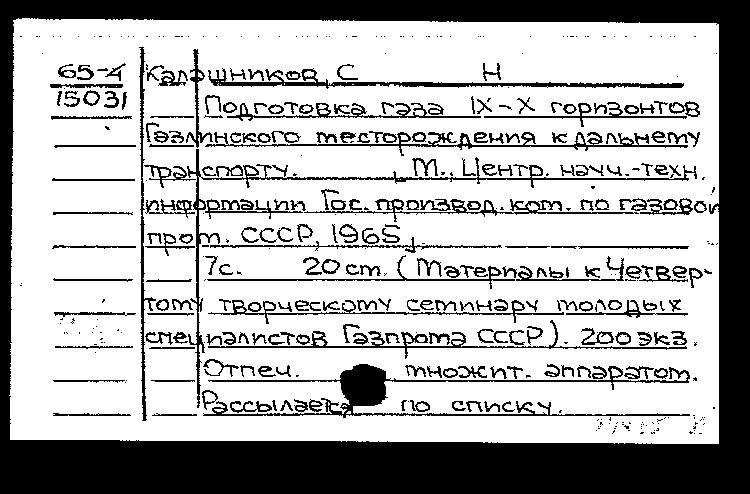 65-4 Калашников, С Н
15031 Подготовка газа IX-X горизонтов
Газлинского месторождения к дальнему
транспорту. [М., Центр. науч.-техн.
информации Гос. производ. ком. по газовой
пром. СССР, 1965].
7с. 20 cm. (Материалы к Четвер-
тому творческому семинару молодых
специалистов Газпрома СССР). 200 экз.
Отпеч. множит. аппаратом.
Рассылается по списку.